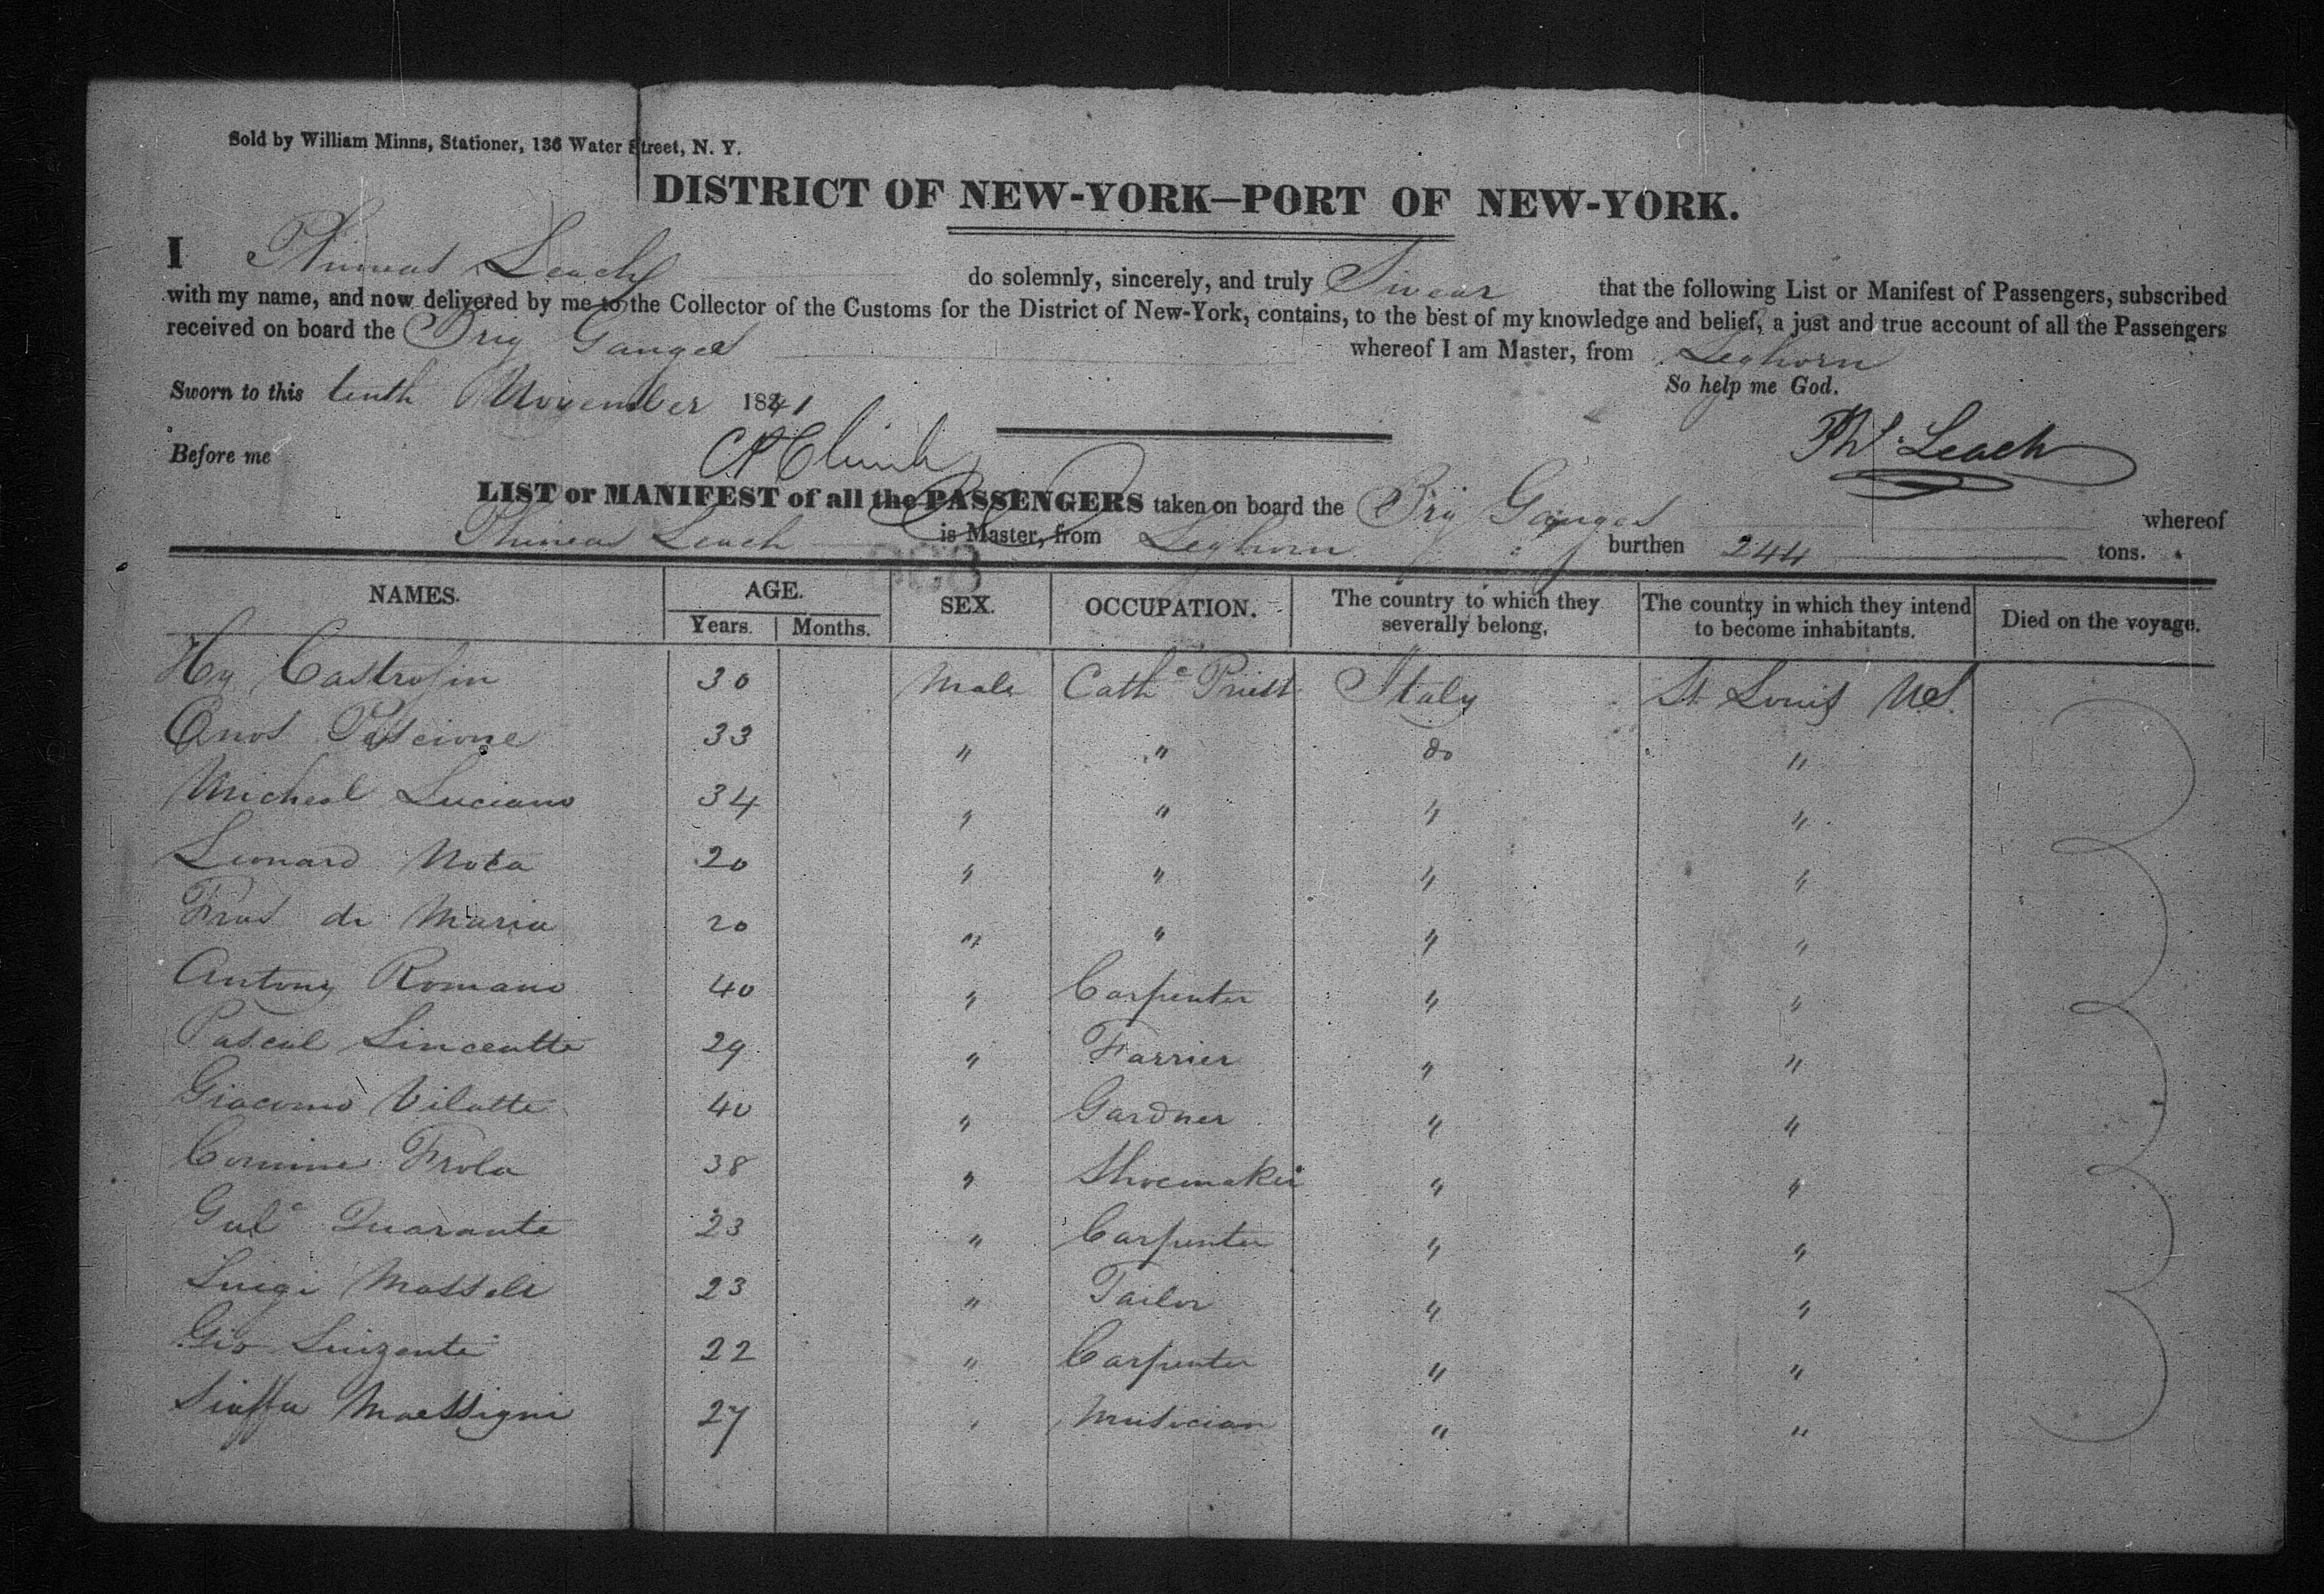 Sold by William Minns, Stationer, 136 Water Street, N. Y.
DISTRICT OF NEW-YORK—PORT OF NEW-YORK.
I Phineas Leach do solemnly, sincerely, and truly Swear that the following List or Manifest of Passengers, subscribed
with my name, and now delivered by me to the Collector of the Customs for the District of New-York, contains, to the best of my knowledge and belief, a just and true account of all the Passengers
received on board the Brig Ganges whereof I am Master, from Leghorn
Sworn to this tenth November 1841 So help me God.
Before me Phs. Leach
LIST or MANIFEST of all the PASSENGERS taken on board the Brig Ganges whereof
Phineas Leach is Master, from Leghorn burthen 244 tons.
NAMES. AGE. Years. Months. SEX. OCCUPATION. The country to which they severally belong. The country in which they intend to become inhabitants. Died on the voyage.
Hy 30 Male Cathc Priest Italy St. Louis US.
33 " " do "
Micheal Luciano 34 " " " "
Leonard Nota 20 " " " "
de Maria 20 " " " "
Antony Romano 40 " Carpenter " "
Pascal 29 " Farrier " "
Giacomo Vilatte 40 " Gardner " "
Frola 38 " Shoemaker " "
Quarante 23 " Carpenter " "
Luigi Massele 23 " Tailor " "
Gio 22 " Carpenter " "
27 " Musician " "